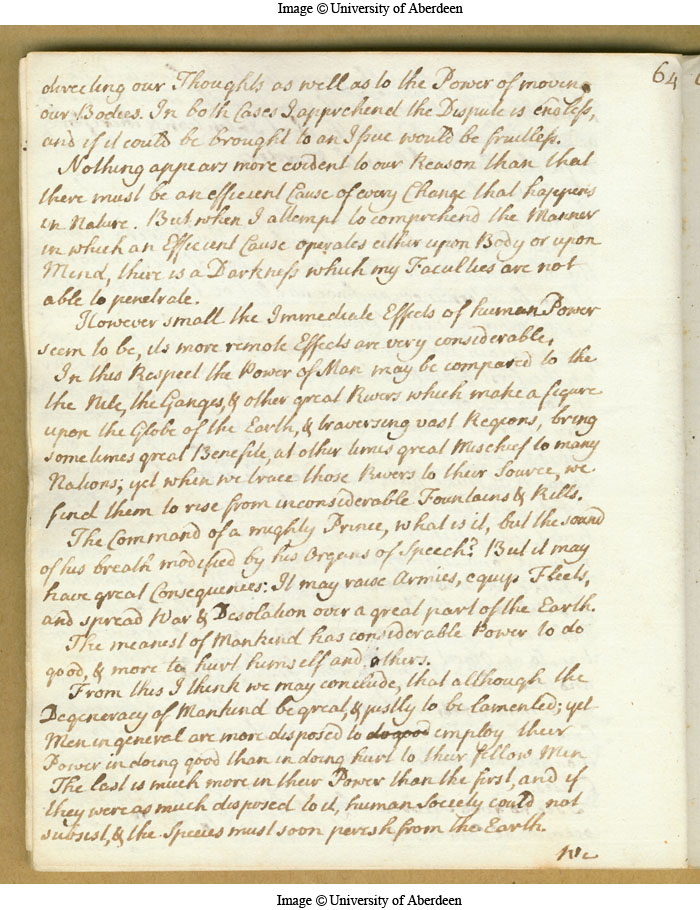 Image © University of Aberdeen
64
directing our Thoughts as well as to the Power of moving
our Bodies. In both Cases I apprehend the Dispute is endless,
and if it could be brought to an Issue would be fruitless.
Nothing appears more evident to our Reason than that
there must be an efficient Cause of every Change that happens
in Nature. But when I attempt to comprehend the Manner
in which an Efficient Cause operates either upon Body or upon
Mind, there is a Darkness which my Faculties are not
able to penetrate.
However small the Immediate Effects of human Power
seem to be, its more remote Effects are very considerable.
In this Respect the Power of Man may be compared to the
the Nile, the Ganges, & other great Rivers which make a figure
upon the Globe of the Earth, & traversing vast Regions, bring
sometimes great Benefite, at other times great Mischief to many
Nations; yet when we trace those Rivers to their Source, we
find them to rise from inconsiderable Fountains & Rills.
The Command of a mighty Prince, what is it, but the sound
of his breath modified by his Organs of Speech? But it may
have great Consequences: It may raise Armies, equip Fleets,
and spread War & Desolation over a great part of the Earth.
The meanest of Mankind has considerable Power to do
good, & more to hurt himself and others.
From this I think we may conclude, that although the
Degeneracy of Mankind be great, & justly to be lamented; yet
Men in general are more disposed to do good employ their
Power in doing good than in doing hurt to their fellow Men
The last is much more in their Power than the first, and if
they were as much disposed to it, human Society could not
subsist, & the Species must soon perish from the Earth.
We
Image © University of Aberdeen